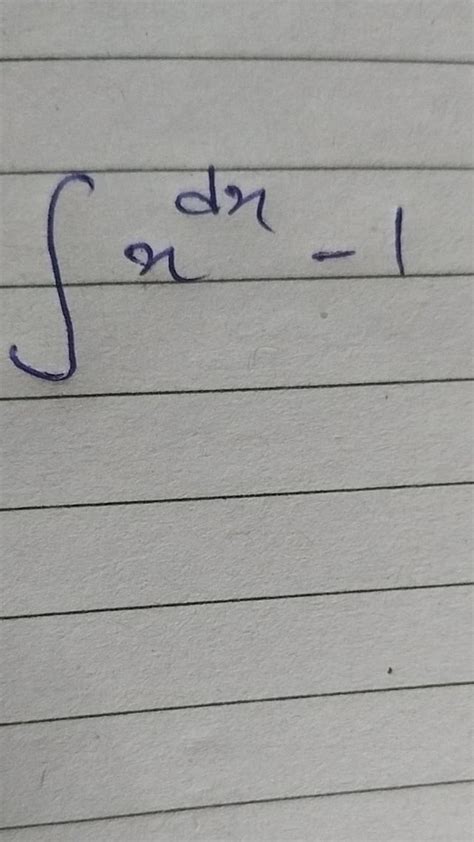 ∫ x^{dx} - 1